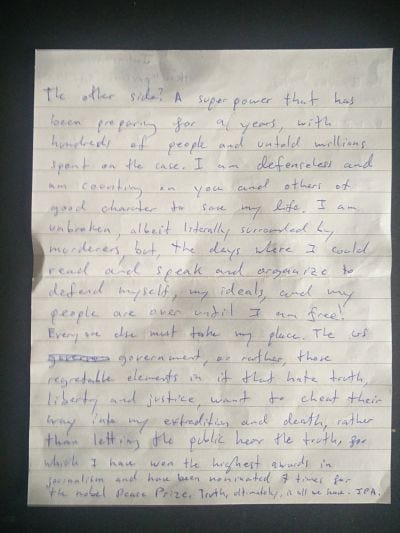 The other side? A superpower that has
been preparing for 9 years, with
hundreds of people and untold millions
spent on the case. I am defenseless and
am counting on you and others of
good character to save my life. I am
unbroken, albeit literally surrounded by
murderers, but, the days where I could
read and speak and organize to
defend myself, my ideals, and my
people are over until I am free!
Everyone else must take my place. The US
government, or rather, those
regretable elements in it that hate truth,
liberty and justice, want to cheat their
way into my extradition and death, rather
than letting the public hear the truth, for
which I have won the highest awards in
journalism and have been nominated 7 times for
the nobel Peace Prize. Truth, ultimately, is all we have. JPA.